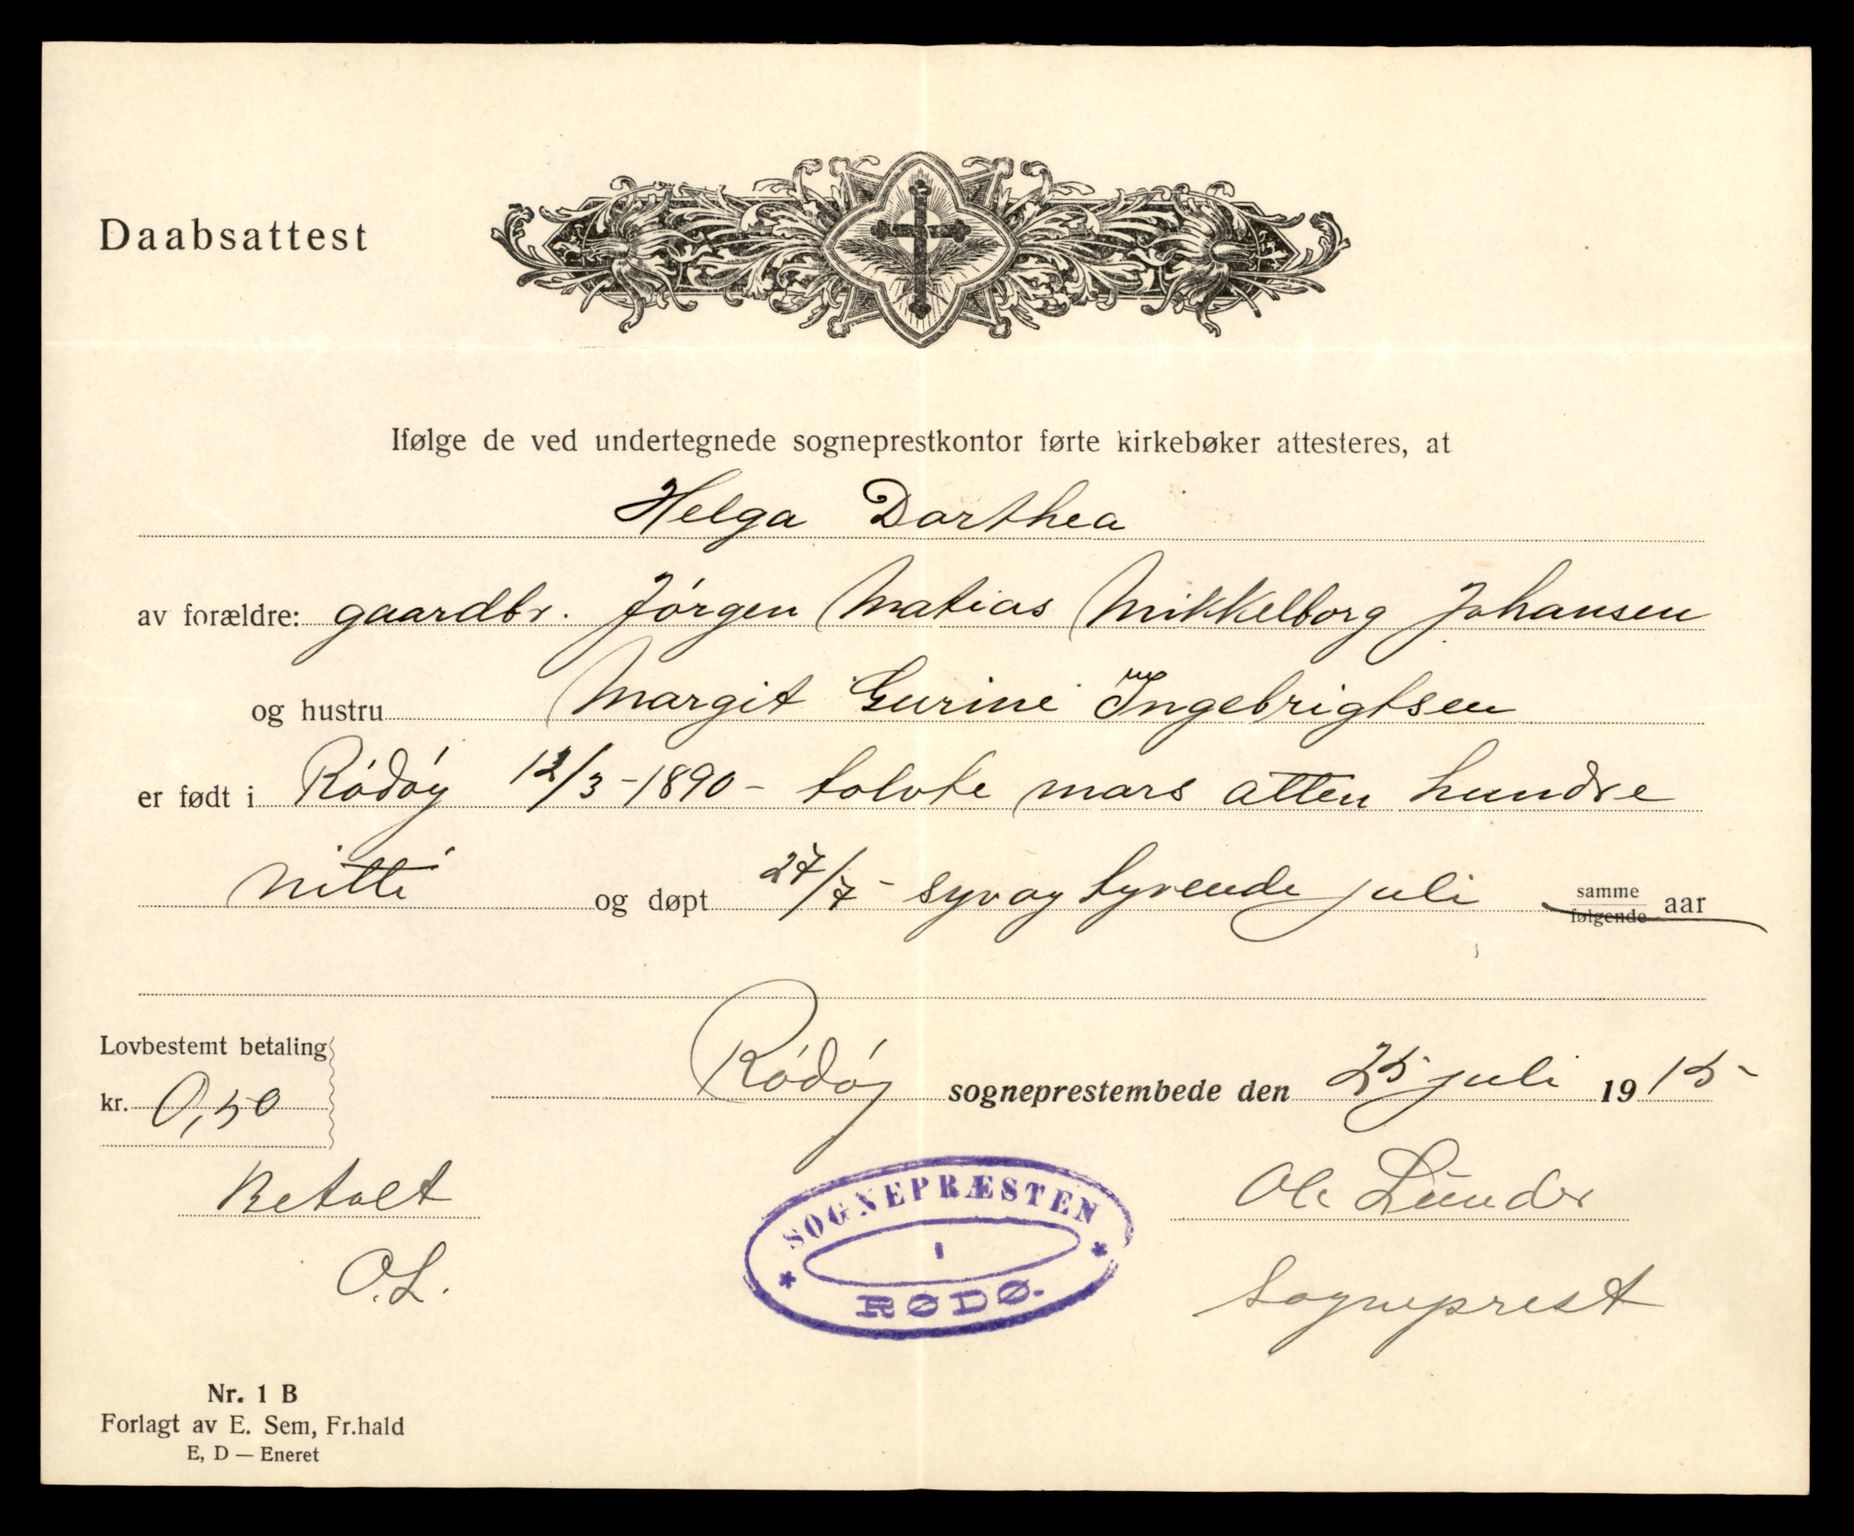 Daabsattest
Ifølge de ved undertegnede sogneprestkontor førte kirkebøker attesteres, at
Helga Dorthea
av forældre: gaardbr. Jórgen Matias Mikkelborg Johansen
og hustru Margit Gurine Ingebrigtsen
er født i Ródóy 12/3 - 1890 - tolvte mars atten hundre
nitti og døpt 27/7 - syv og tyvende juli samme følgende aar
Lovbestemt betaling
kr. 0,50
Ródóy sogneprestembede den 25 juli 1915 -
Betalt
O.L.
Ole Lunder
Sogneprest
SOGNEPRÆSTEN
I
RØDØ.
Nr. 1 B
Forlagt av E. Sem, Fr.hald
E, D — Eneret